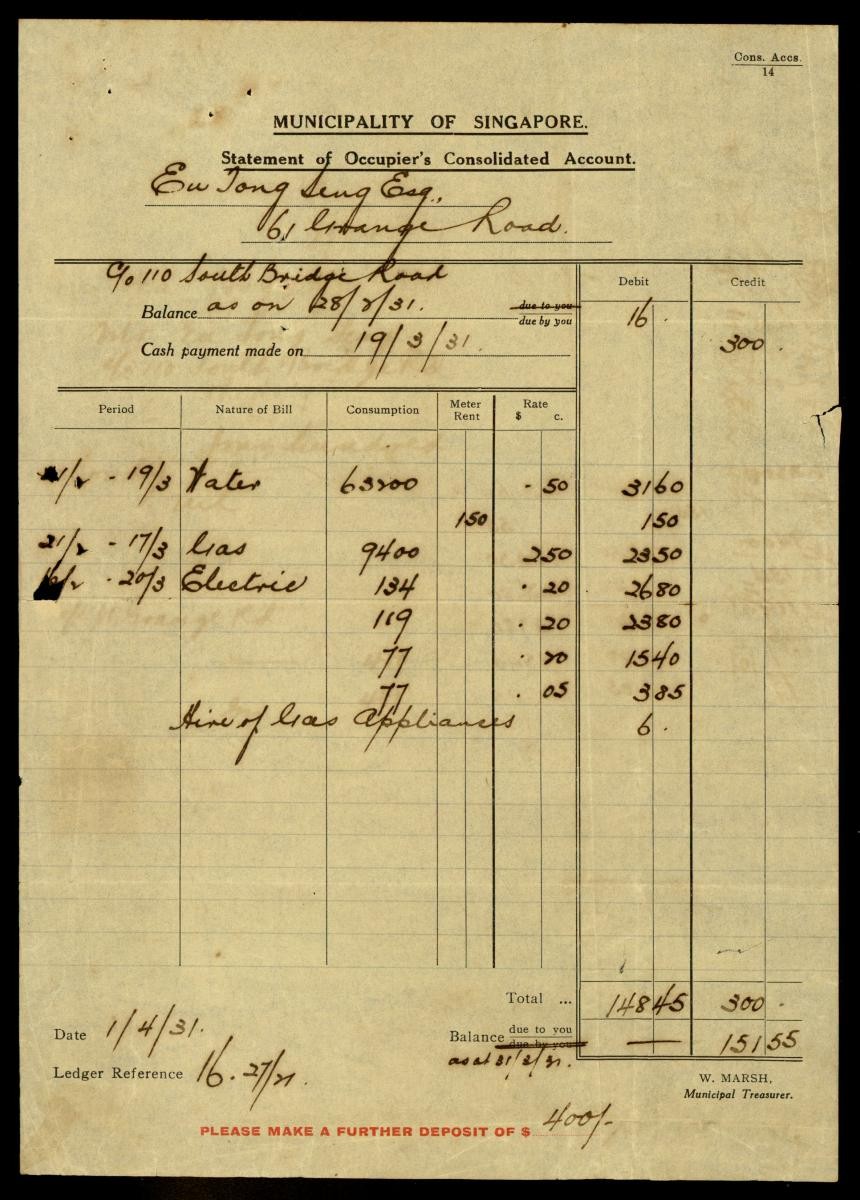 Cons. Accs.
14
MUNICIPALITY OF SINGAPORE.
Statement of Occupier's Consolidated Account.
Eu Tong Seng Esq.,
61 Grange Road.
C/o 110 South Bridge Road
Debit Credit
Balance as on 28/2/31. due to you due by you 16 .
Cash payment made on 19/3/31. 300 .
Period Nature of Bill Consumption Meter Rent Rate $ c.
21/2 - 19/3 Water 63200 . 50 31 60
1 50 1 50
21/2 - 17/3 Gas 9400 2 50 23 50
16/2 - 20/3 Electric 134 . 20 26 80
119 . 20 23 80
77 . 20 15 40
77 . 05 3 85
Hire of Gas Appliances 6 .
Total ... 148 45 300 -
Date 1/4/31.
Balance due to you due by you — 151 55
as at 31/3/31.
Ledger Reference 16. 27/21
W. MARSH,
Municipal Treasurer.
PLEASE MAKE A FURTHER DEPOSIT OF $ 400/-